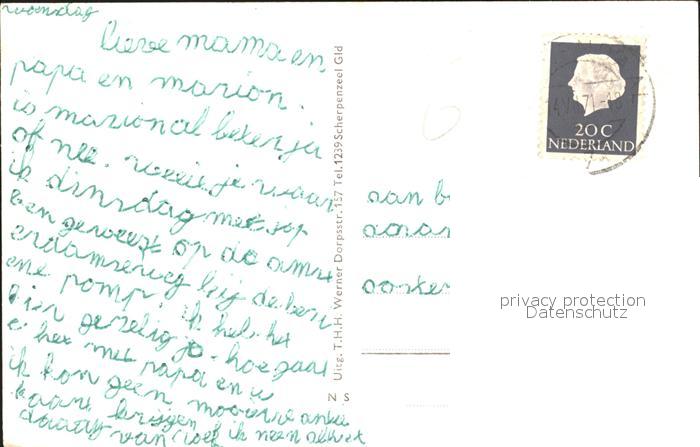 woensdag
lieve mama en
papa en marion.
is marional beter ja
of nee. weet je waar
ik dinsdag met jop
ben geweest op do amst
erdamseweg bij de ben
zine pomp. ik heb het
hier gezelig ja. hoe gaat
het met papa en u
ik kon geen mooiere ansi
kaart krijgen
daag van ik neem alvast
Uitg. T.H.H. Werner Dorpsstr. 157 Tel. 1239 Scherpenzeel Gld
N S
20 C
NEDERLAND
aan
ooster
privacy protection
Datenschutz